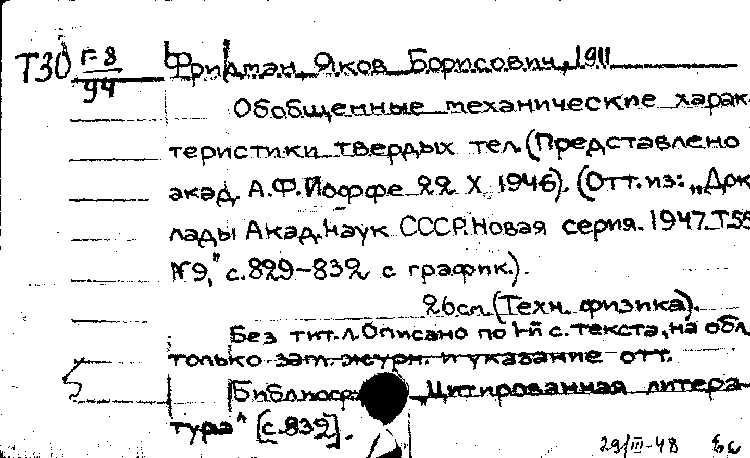 Т30 Г-8/94 Фридман, Яков Борисович, 1911
Обобщенные механические харак-
теристики твердых тел. (Представлено
акад. А.Ф. Иоффе 22 X 1946). (Отт. из: „Док-
лады Акад. Наук СССР. Новая серия. 1947. Т.55
№9," с.829-832 с график.).
26см. (Техн. физика).
Без тит. л. Описано по 1-й с. текста, на обл.
только загл. журн. и указание отт.
"Цитированная литера-
тура" [с.832].
29/III-48